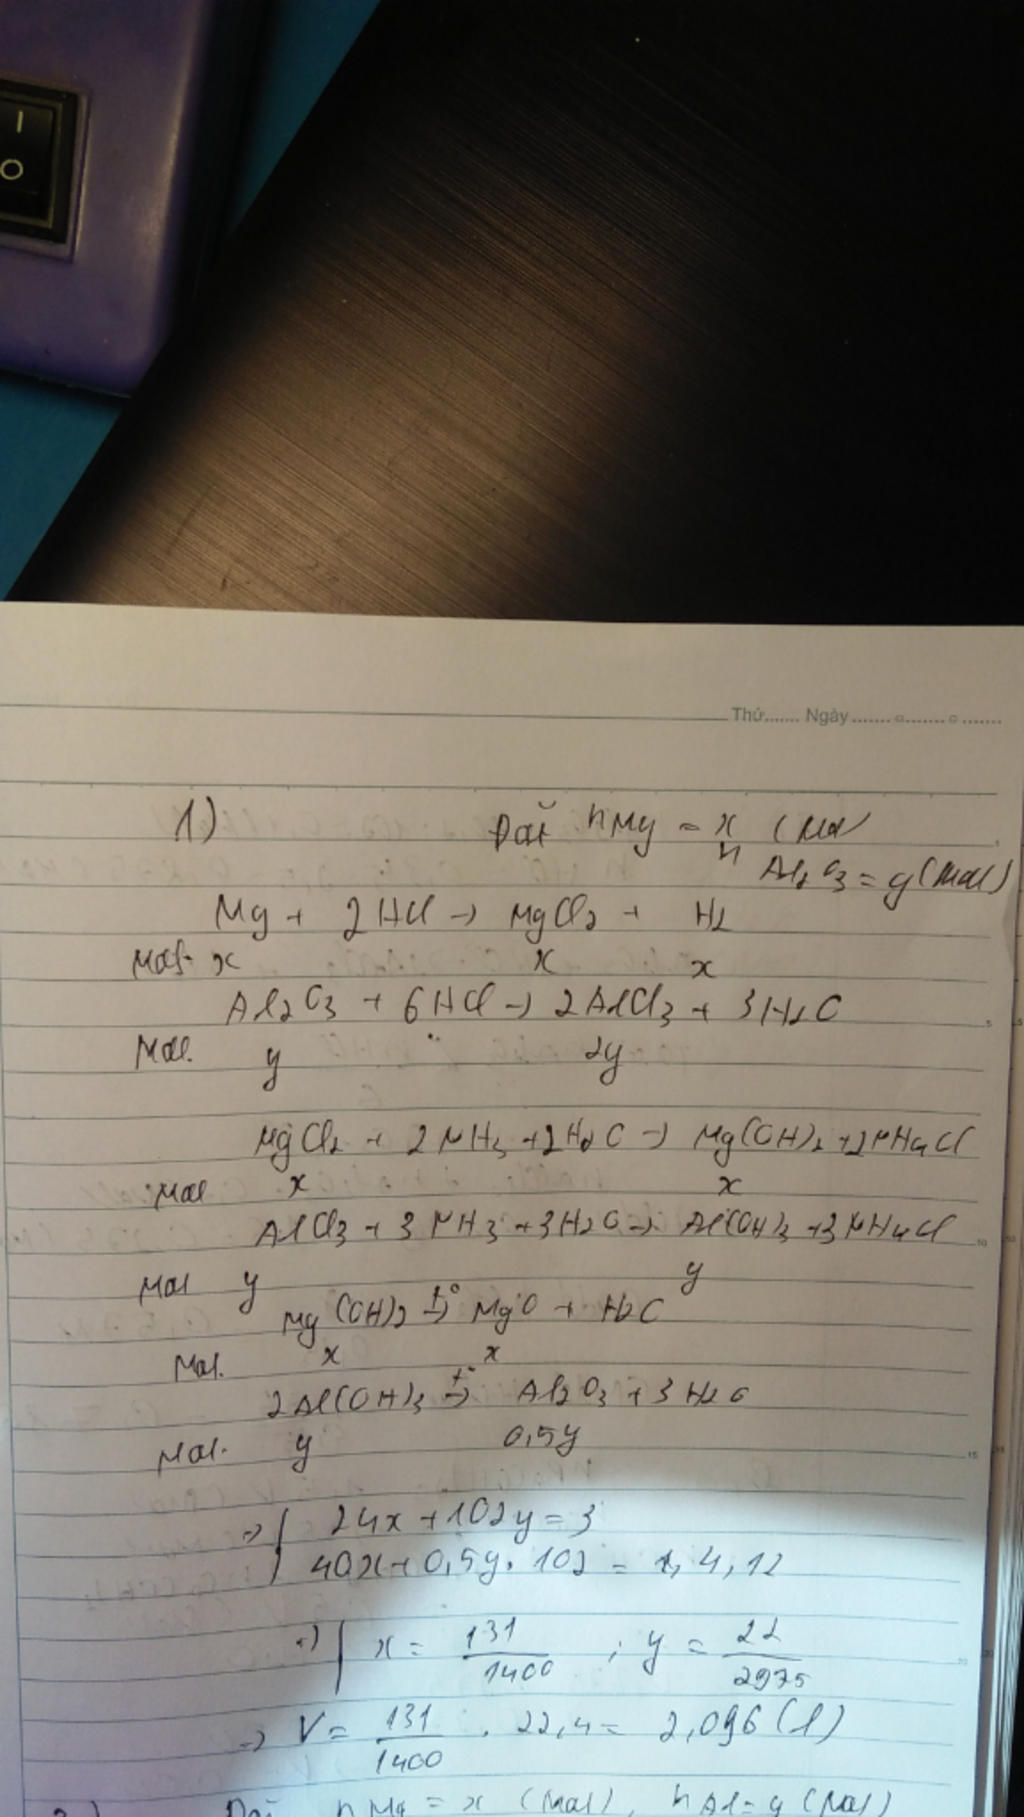 I
O
Thứ....... Ngày.......................
1) Đặt nMg = x (mol)
n Al2O3 = y (mol)
Mg + 2HCl → MgCl2 + H2
Mol x x x
Al2O3 + 6HCl → 2AlCl3 + 3H2O
Mol. y 2y
MgCl2 + 2NH3 + 2H2O → Mg(OH)2 + 2NH4Cl
Mol x x
AlCl3 + 3NH3 + 3H2O → Al(OH)3 + 3NH4Cl
Mol y y
Mg(OH)2 t°→ MgO + H2O
Mol. x x
2Al(OH)3 t°→ Al2O3 + 3H2O
Mol. y 0,5y
=> { 24x + 102y = 3
40x + 0,5y. 102 = 4,12
=> { x = 131/1400 ; y = 22/2975
=> V = 131/1400 . 22,4 = 2,096 (l)
Đặt nMg = x (mol), nAl = y (mol)